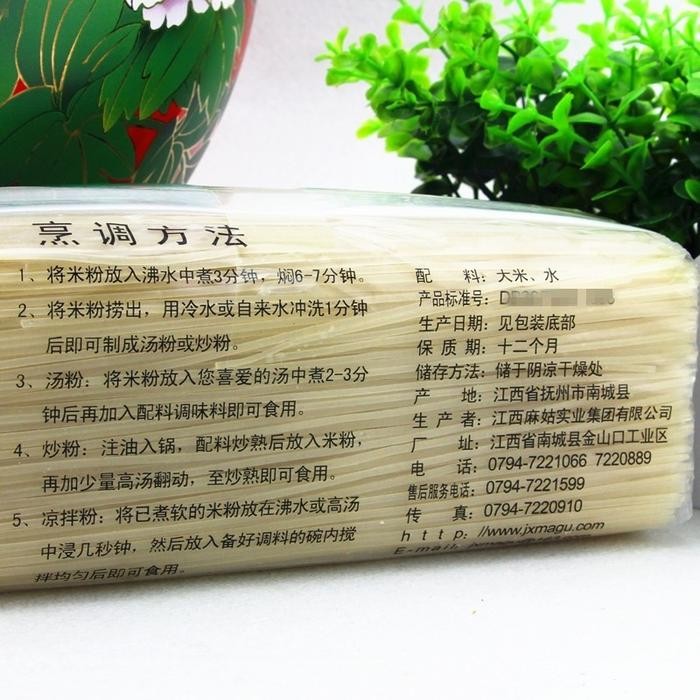 烹调方法
1、将米粉放入沸水中煮3分钟，焖6-7分钟。
2、将米粉捞出，用冷水或自来水冲洗1分钟
后即可制成汤粉或炒粉。
3、汤粉：将米粉放入您喜爱的汤中煮2-3分
钟后再加入配料调味料即可食用。
4、炒粉：注油入锅，配料炒熟后放入米粉，
再加少量高汤翻动，至炒熟即可食用。
5、凉拌粉：将已煮软的米粉放在沸水或高汤
中浸几秒钟，然后放入备好调料的碗内搅
拌均匀后即可食用。
配 料：大米、水
产品标准号：
生产日期：见包装底部
保 质 期：十二个月
储存方法：储于阴凉干燥处
产 地：江西省抚州市南城县
生 产 者：江西麻姑实业集团有限公司
厂 址：江西省南城县金山口工业区
电 话：0794-7221066 7220889
售后服务电话：0794-7221599
传 真：0794-7220910
http：//www.jxmagu.com
E-mail: